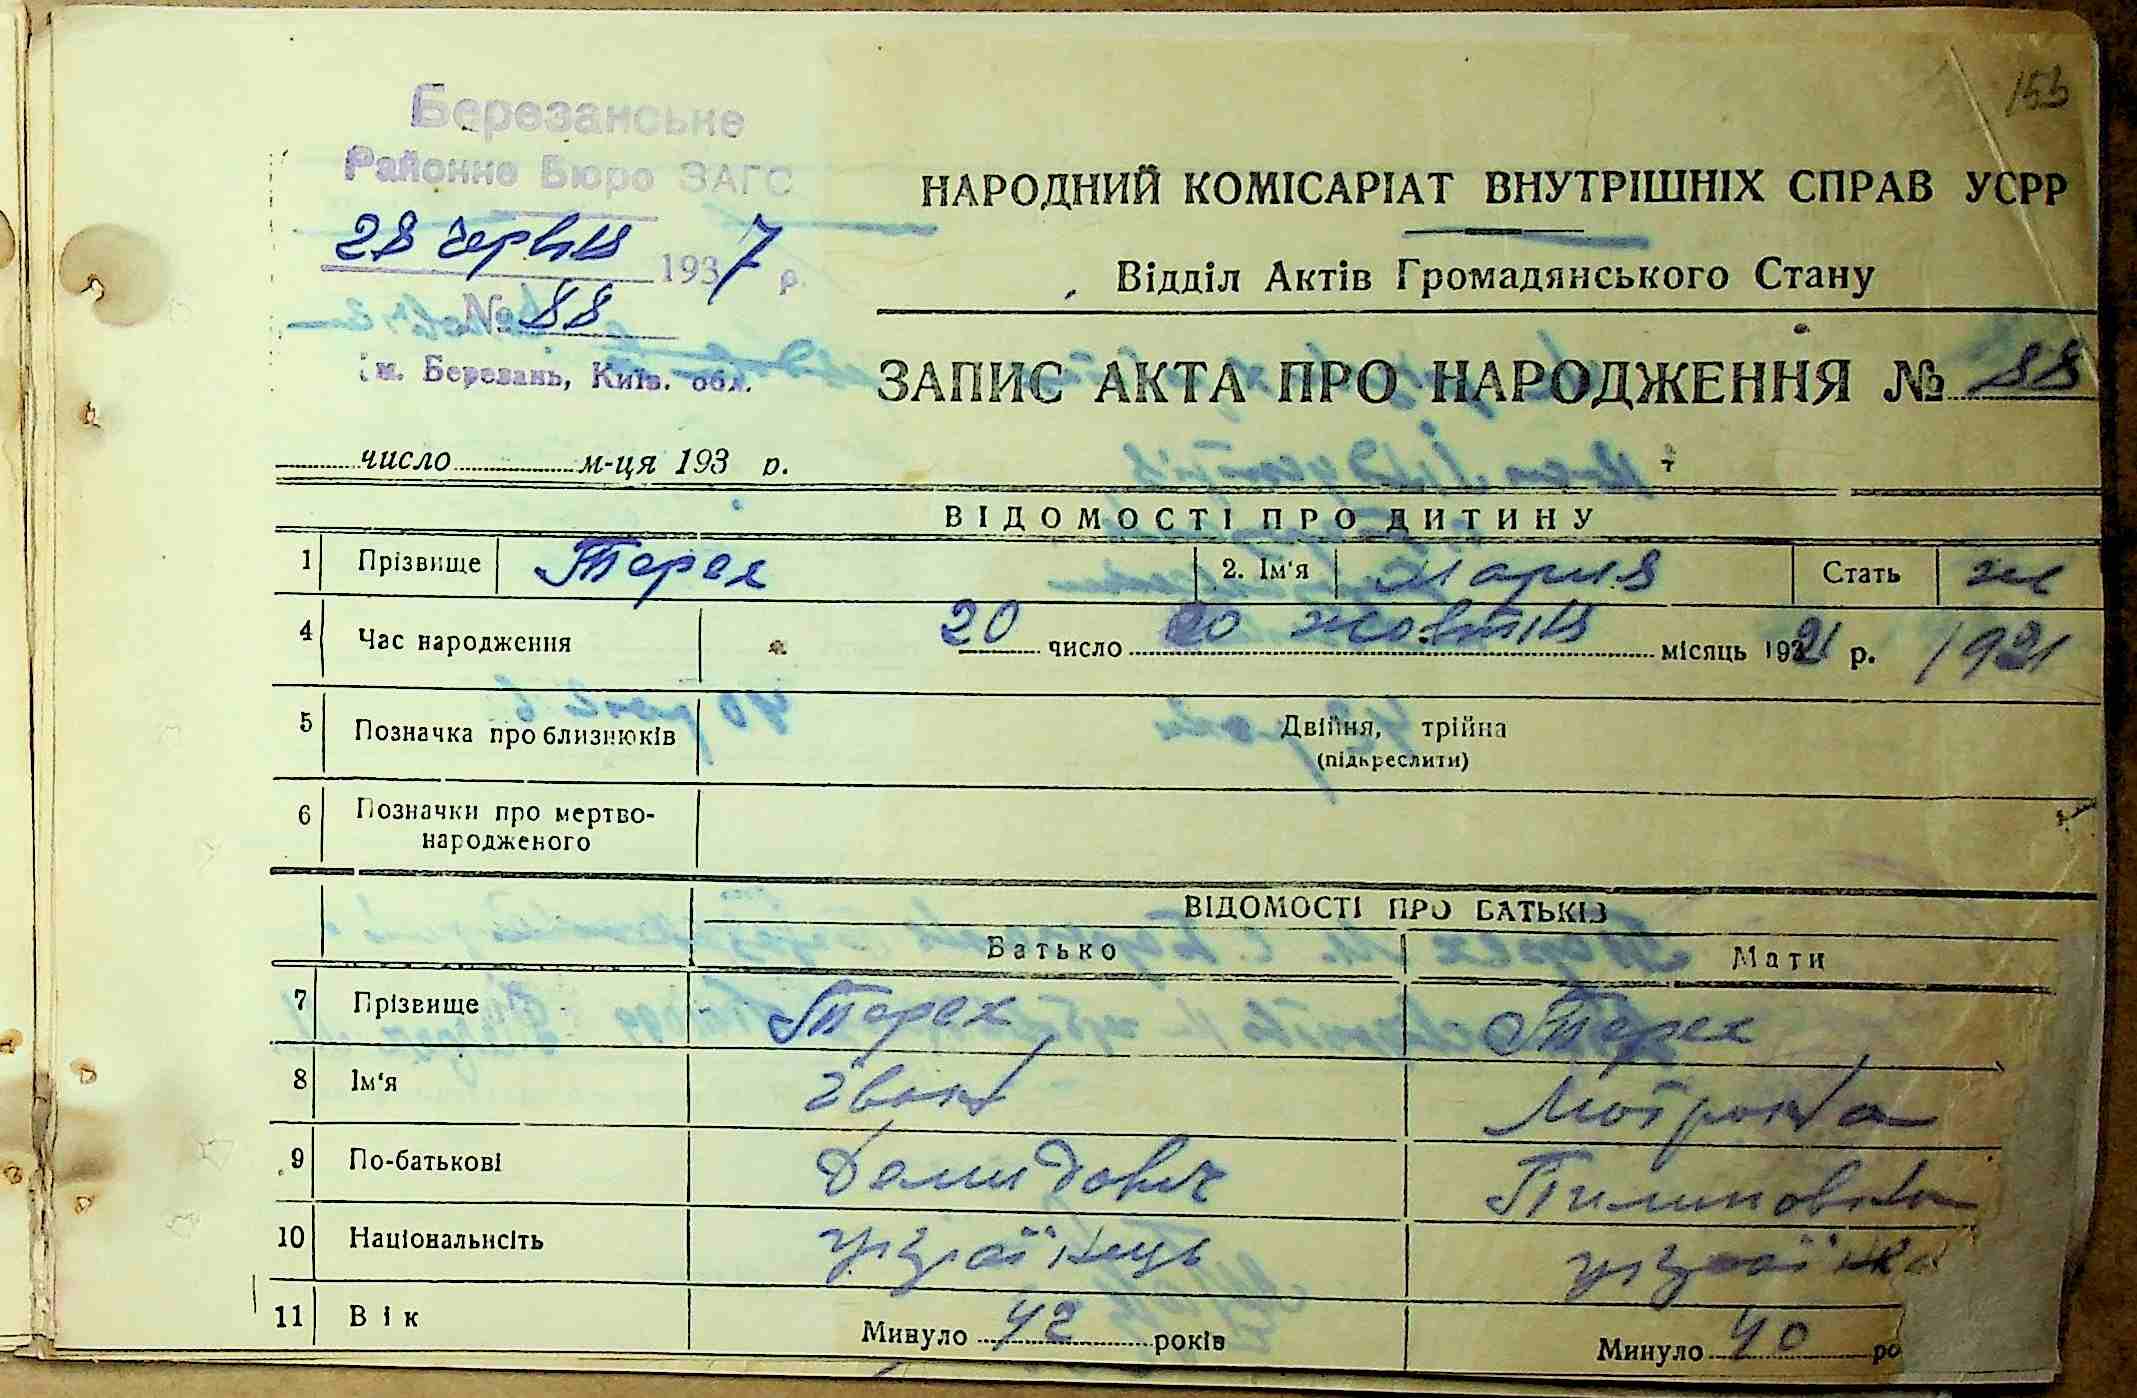 153
Березанське
Районне Бюро ЗАГС
28 червня 1937 р.
№ 88
м. Березань, Київ. обл.
НАРОДНИЙ КОМІСАРІАТ ВНУТРІШНІХ СПРАВ УСРР
Відділ Актів Громадянського Стану
ЗАПИС АКТА ПРО НАРОДЖЕННЯ № 88
число м-ця 193 р.
ВІДОМОСТІ ПРО ДИТИНУ
1 Прізвище Терех 2. Ім'я Мария Стать ж
4 Час народження 20 число жовтня місяць 1921 р. 1921
5 Позначка про близнюків Двійня, трійна
(підкреслити)
6 Позначки про мертво-
народженого
ВІДОМОСТІ ПРО БАТЬКІВ
Батько Мати
7 Прізвище Терех Терех
8 Ім'я Іван Мотрона
9 По-батькові Демидович Пилиповна
10 Національність українець українка
11 Вік Минуло 42 років Минуло 40 ро